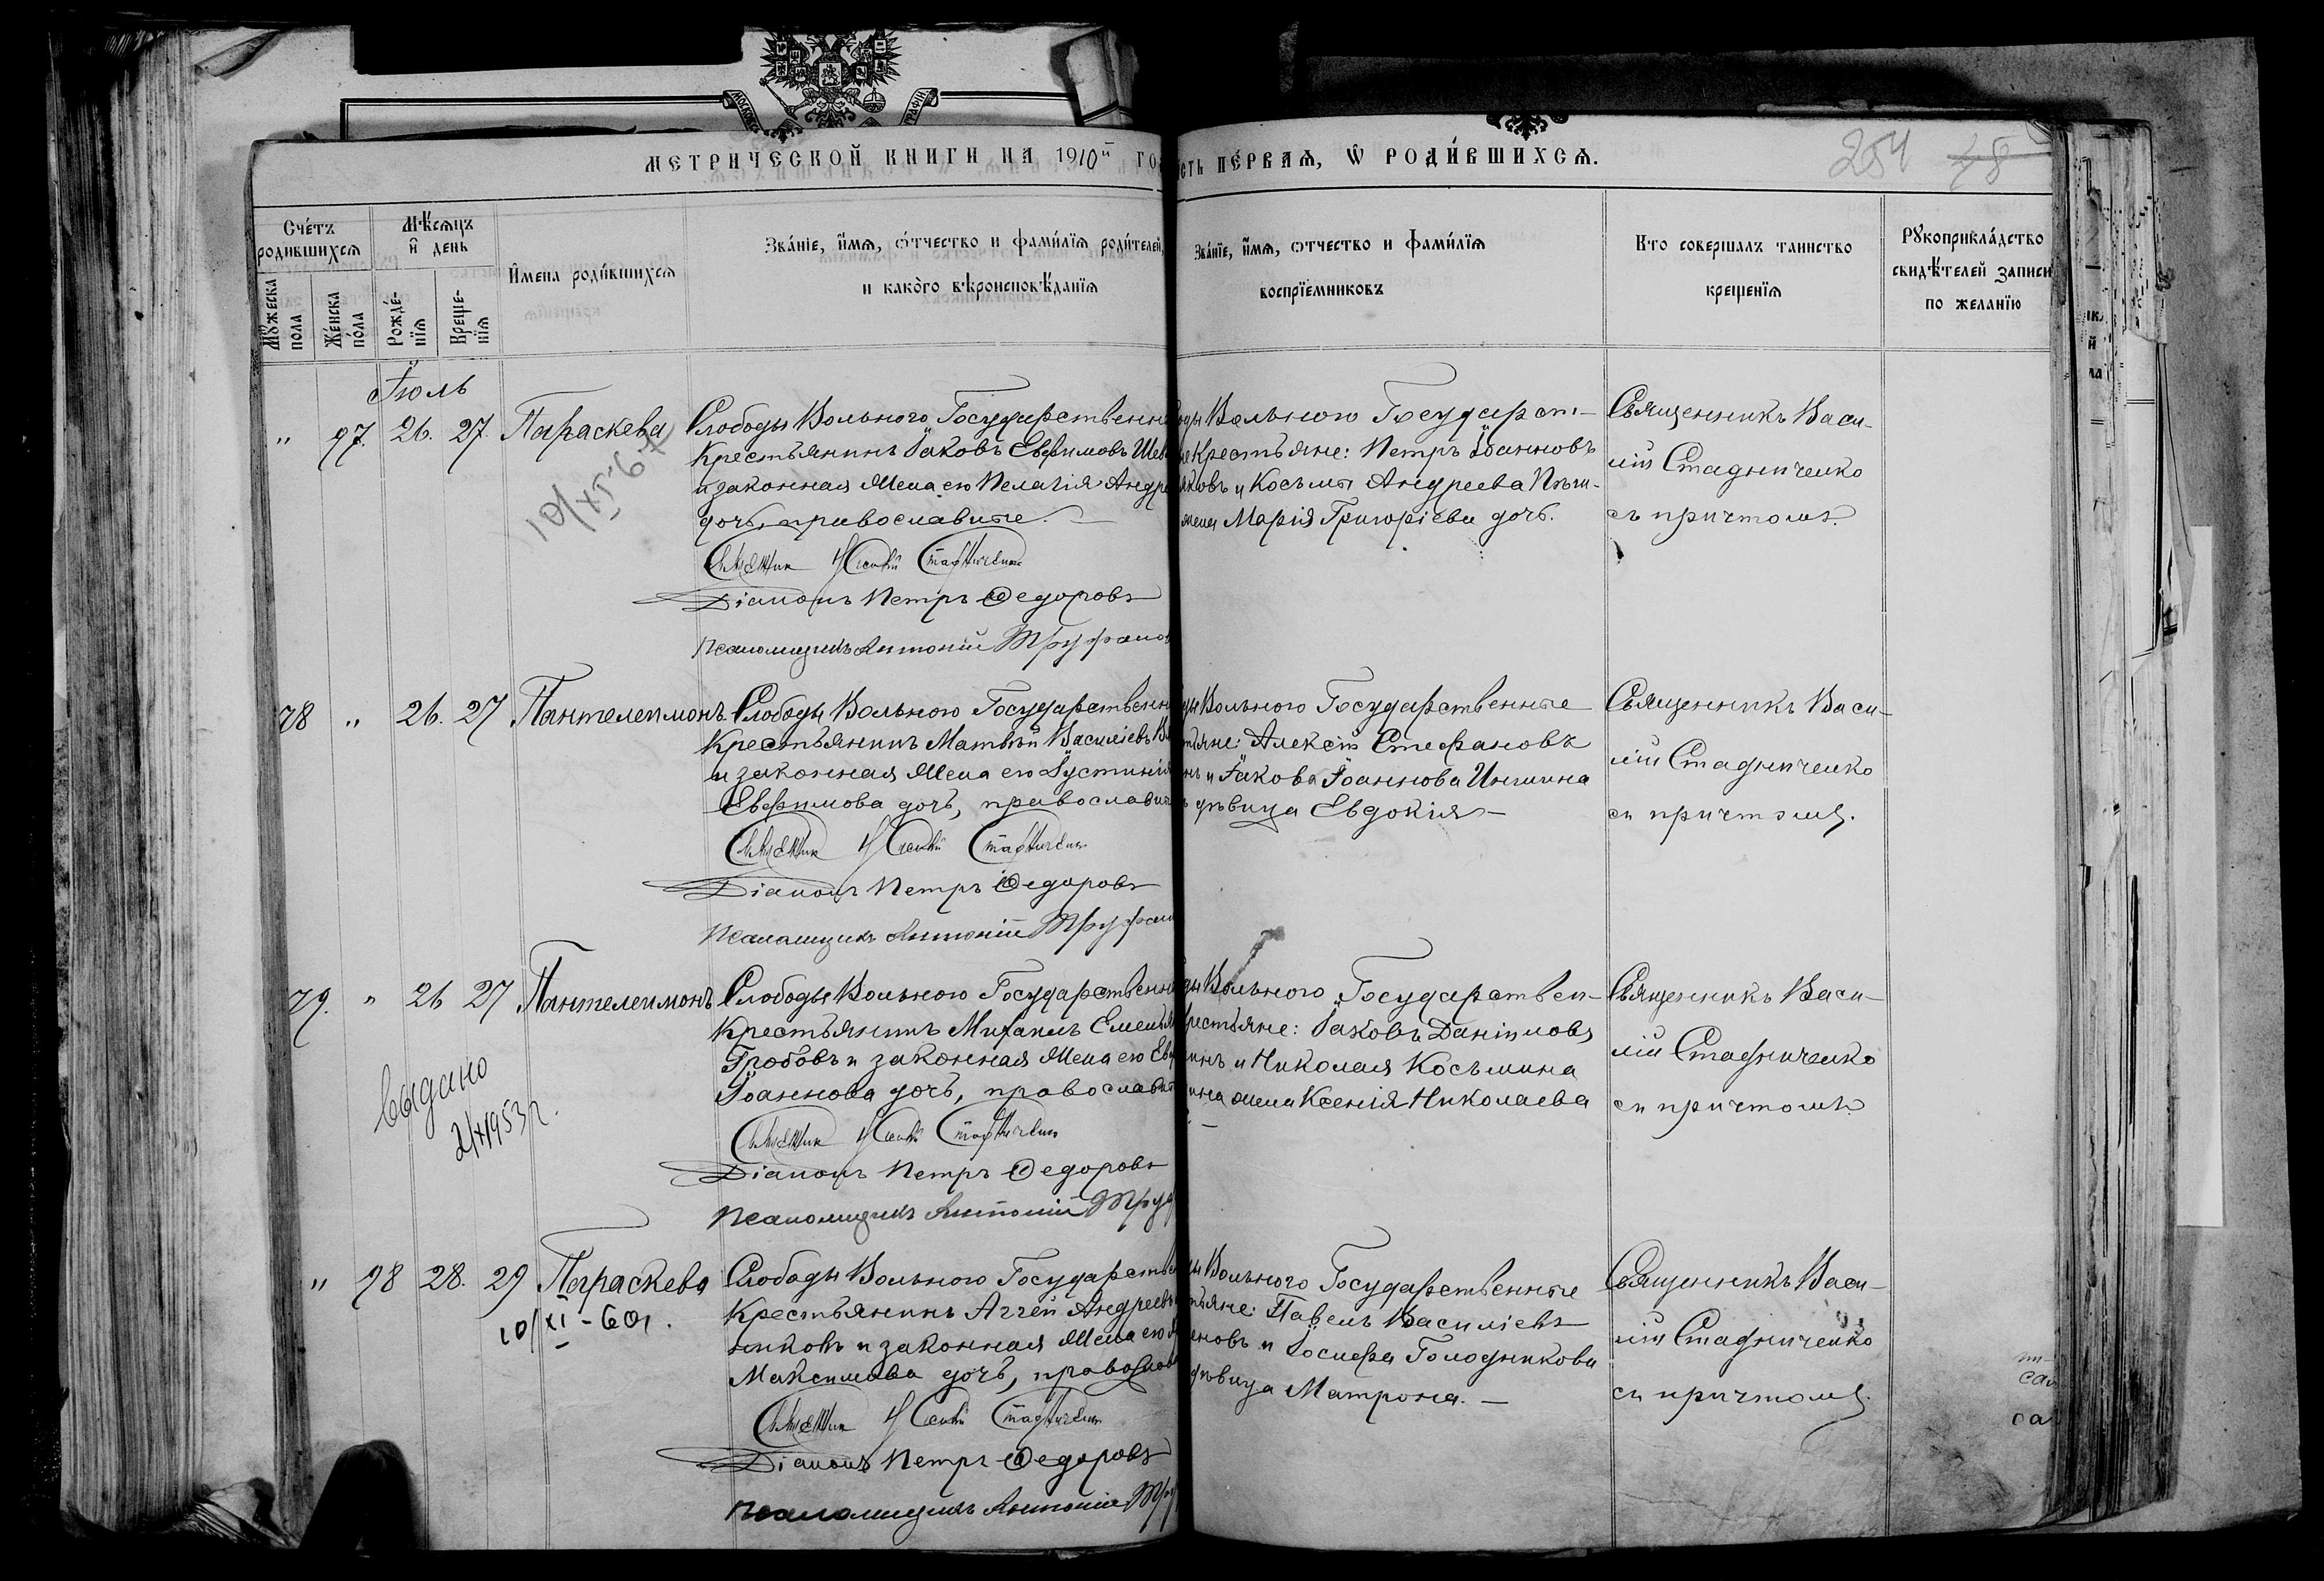 МЕТРИЧЕСКОЙ КНИГИ НА 1910й ГО
СТЬ ПЕРВАЯ, Ѡ РОДИВШИХСЯ.
254 78
Счетъ родившихся
Мѣсяцъ и день
Имена родившихся
Званіе, имя, отчество и фамилія родителей,
и какого вѣроисповѣданія
Званіе, имя, отчество и фамилія
воспріемниковъ
Кто совершалъ таинство
крещенія
Рукоприкладство
свидѣтелей записи
по желанію
Мужеска пола
Женска пола
Рожденія
Крещенія
Іюль
" 97. 26. 27. Параскева
Слободы Вольного Государственн
Крестьянинъ Іаковъ Евфимовъ Шев
и законная жена его Пелагія Андре
дочь, православные.
Священник Василий Стадниченко
Діаконъ Петръ Ѳедоровъ
Псаломщикъ Антоній Труфанов
Вольного Государст-
Крестьяне: Петръ Іоанновъ
яковъ и Косьмы Андреева
жена Марія Григоріева дочь.
Священникъ Васи-
лій Стадниченко
съ причтомъ.
78 " 26. 27 Пантелеимонъ
Слободы Вольного Государственн
Крестьянинъ Матвѣй Василіевъ
и законная жена его Іустинія
Евфимова дочь, православн
Священник Василий Стадниченко
Діаконъ Петръ Ѳедоровъ
Псаломщикъ Антоній Труфан
ды Вольного Государственные
тьяне: Алексій Стефановъ
нъ и Іакова Іоаннова Иншина
дѣвица Евдокія
Священникъ Васи-
лій Стадниченко
съ причтомъ.
79. " 26 27 Пантелеимонъ
выдано
2/X 1953 г.
Слободы Вольного Государственн
Крестьянинъ Михаилъ Емелья
Гробовъ и законная жена его Ев
Іоаннова дочь, православн
Священник Василий Стадниченко
Діаконъ Петръ Ѳедоровъ
Псаломщикъ Антоній Труф
ды Вольного Государствен-
рестьяне: Іаковъ Даніиловъ
инъ и Николая Косьмина
ина жена Ксенія Николаева
Священникъ Васи-
лій Стадниченко
съ причтомъ.
" 98 28. 29 Параскева
10/XI - 60г.
Слободы Вольного Государстве
Крестьянинъ Аггей Андреевъ
никовъ и законная жена его
Максимова дочь, православ
Священник Василий Стадниченко
Діаконъ Петръ Ѳедоровъ
Псаломщикъ Антоній Тру
ды Вольного Государственные
тьяне: Павелъ Василіевъ
еновъ и Іосифа Голодникова
дѣвица Матрона.
Священникъ Васи-
лій Стадниченко
съ причтомъ.